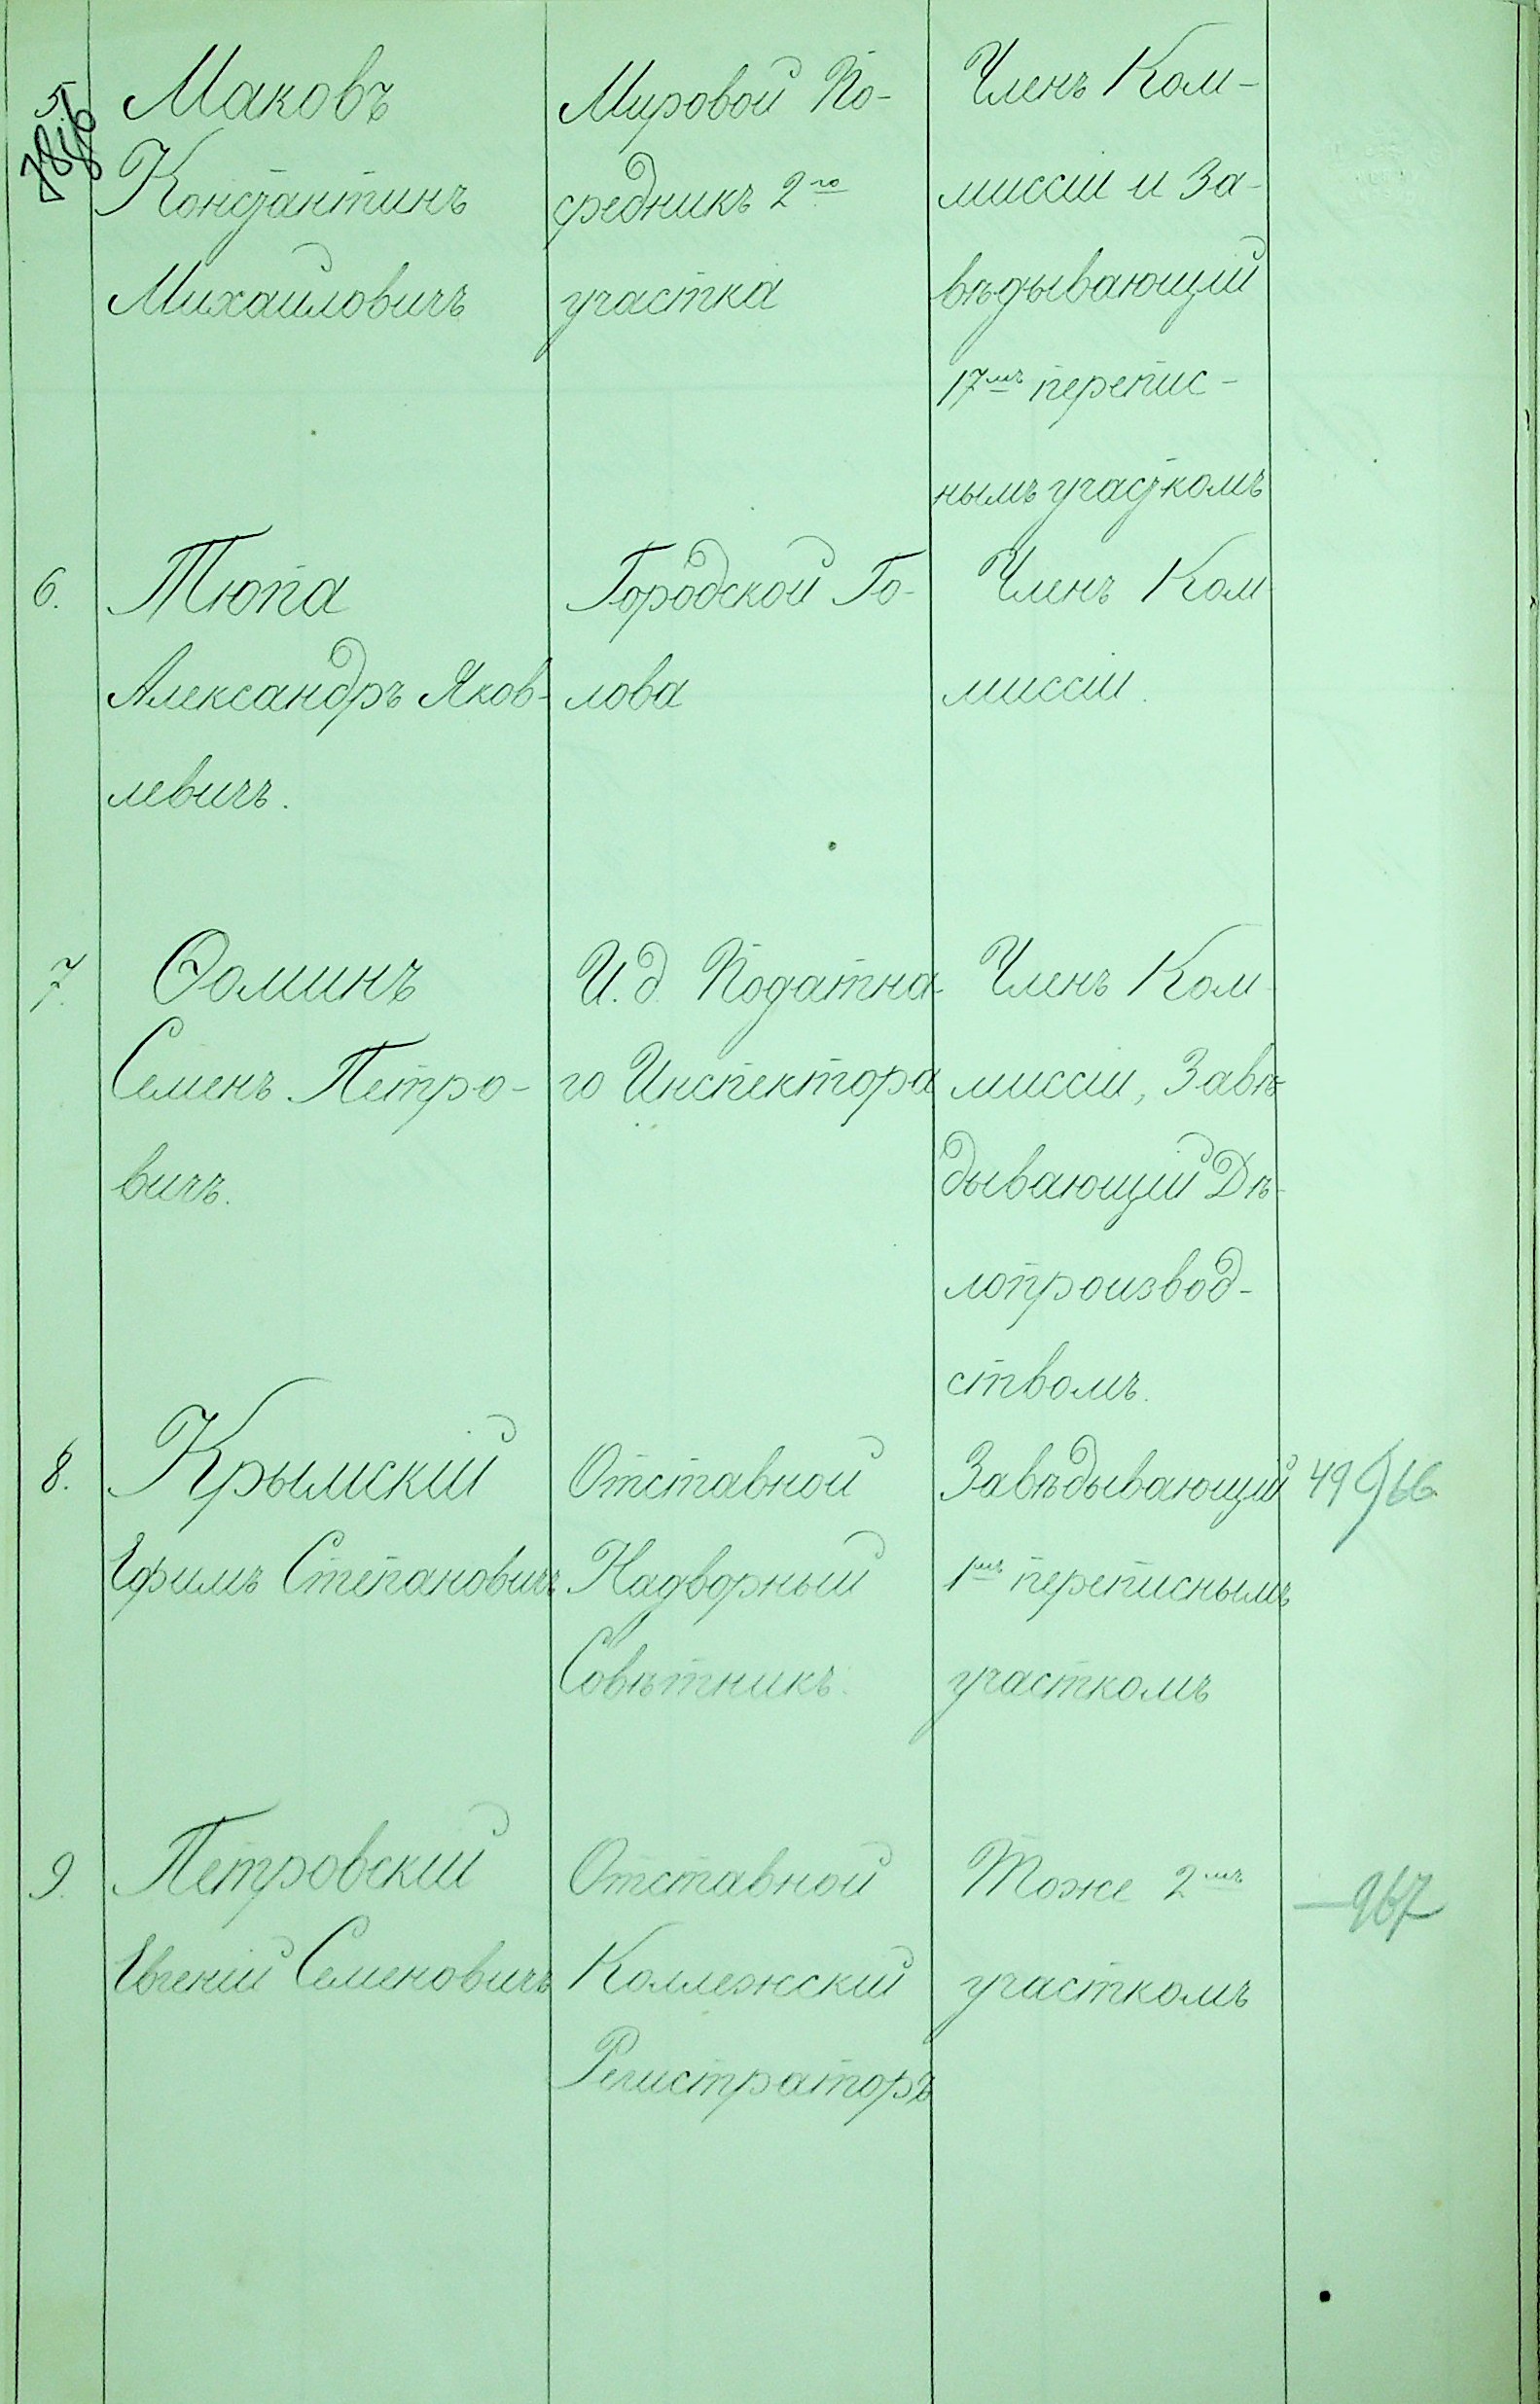 5. Маковъ
Константинъ
Михайловичъ
Мировой По-
средникъ 2го
участка
Членъ Ком-
миссіи и За-
вѣдывающій
17мъ перепис-
нымъ участкомъ
6. Тюпа
Александръ Яков-
левичъ.
Городской Го-
лова
Членъ Ком-
миссіи.
7. Ѳоминъ
Семенъ Петро-
вичъ.
И. д. Податна-
го Инспектора
Членъ Ком-
миссіи, Завѣ-
дывающій Дѣ-
лопроизвод-
ствомъ.
8. Крымскій
Ефимъ Степановичъ
Отставной
Надворный
Совѣтникъ.
Завѣдывающій
1мъ переписнымъ
участкомъ
49966
9. Петровскій
Евгеній Семеновичъ
Отставной
Коллежскій
Регистраторъ
Тоже 2мъ
участкомъ
—967